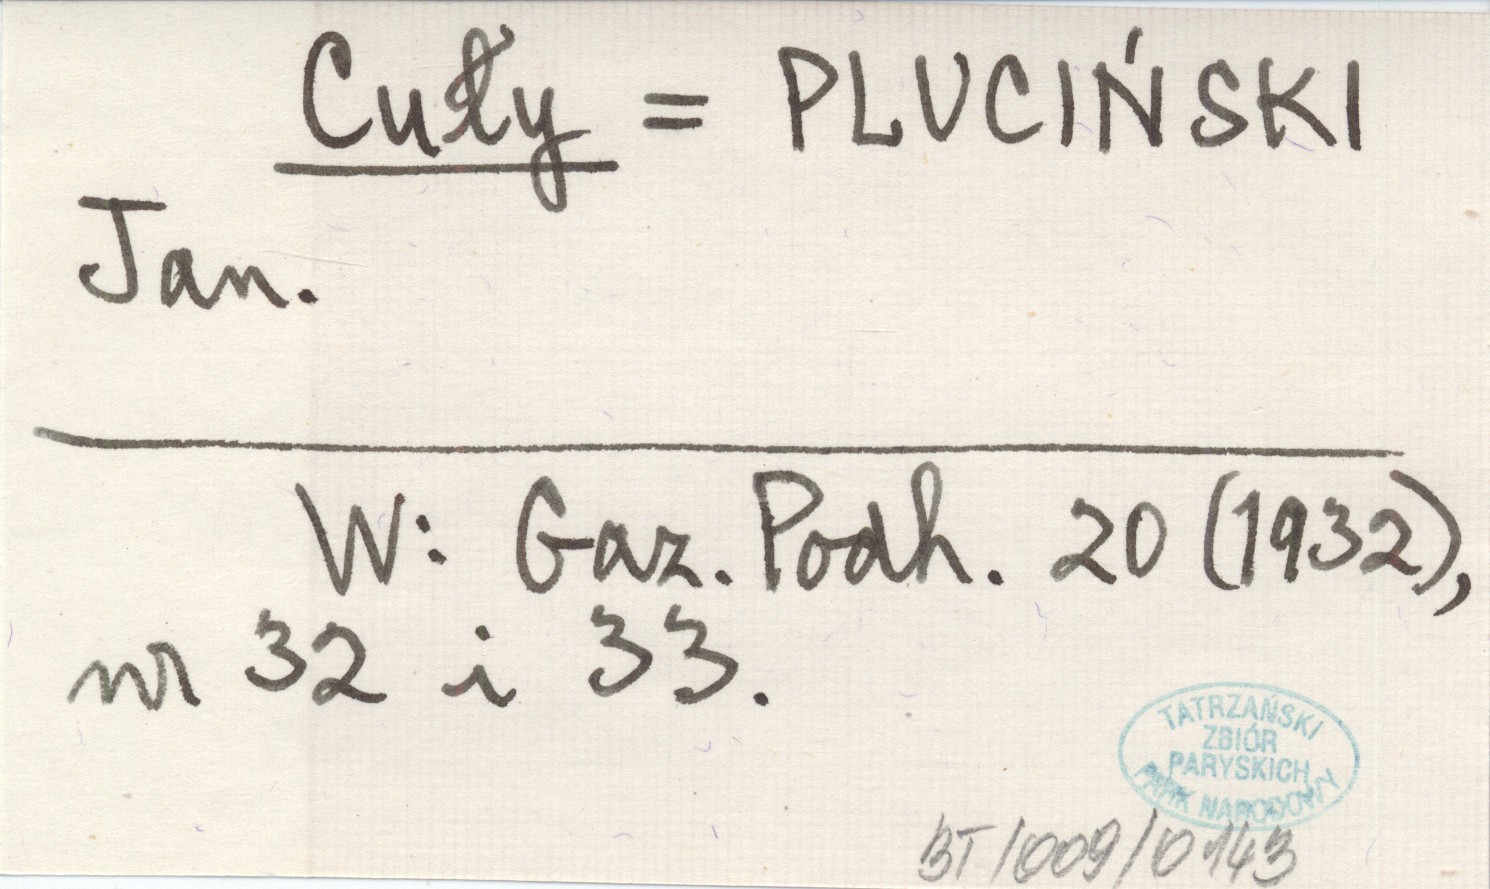 Cuły = PLUCIŃSKI
Jan.
W: Gaz. Podh. 20 (1932),
nr 32 i 33.
TATRZAŃSKI
ZBIÓR
PARYSKICH
PARK NARODOWY
BT/009/0143